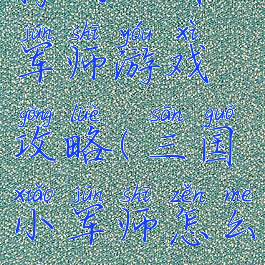 jūn shī yóu xì
军师游戏
gōng lüè sān guó
攻略(三国
xiǎo jūn shī zěn me
小军师怎么